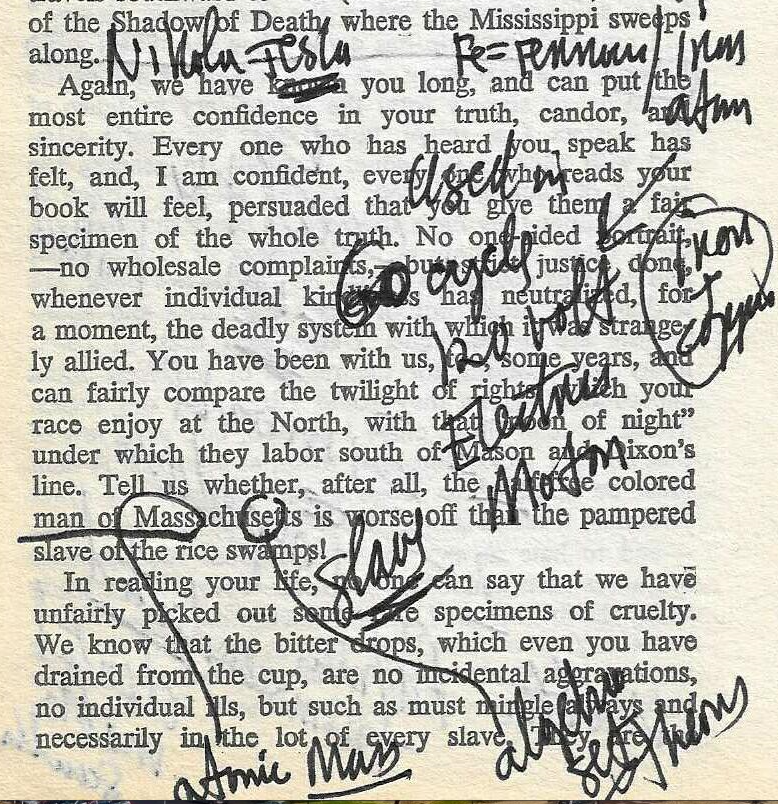 of the Shadow of Death, where the Mississippi sweeps
along.
Nikola Tesla
Fe=Ferrous/Iron
atom
Again, we have known you long, and can put the
most entire confidence in your truth, candor, and
sincerity. Every one who has heard you speak has
felt, and, I am confident, every one who reads your
book will feel, persuaded that you give them a fair
specimen of the whole truth. No one-sided portrait,
—no wholesale complaints,—but strict justice done,
whenever individual kindness has neutralized, for
a moment, the deadly system with which it was strange-
ly allied. You have been with us, too, some years, and
can fairly compare the twilight of rights, which your
race enjoy at the North, with that "noon of night"
under which they labor south of Mason and Dixon's
line. Tell us whether, after all, the half-free colored
man of Massachusetts is worse off than the pampered
slave of the rice swamps!
Used in
60 cycle
120 volt
Electric
Motor
Iron
Slave
In reading your life, no one can say that we have
unfairly picked out some rare specimens of cruelty.
We know that the bitter drops, which even you have
drained from the cup, are no incidental aggravations,
no individual ills, but such as must mingle always and
necessarily in the lot of every slave. They are the
atomic Mass
algebra
set Theory